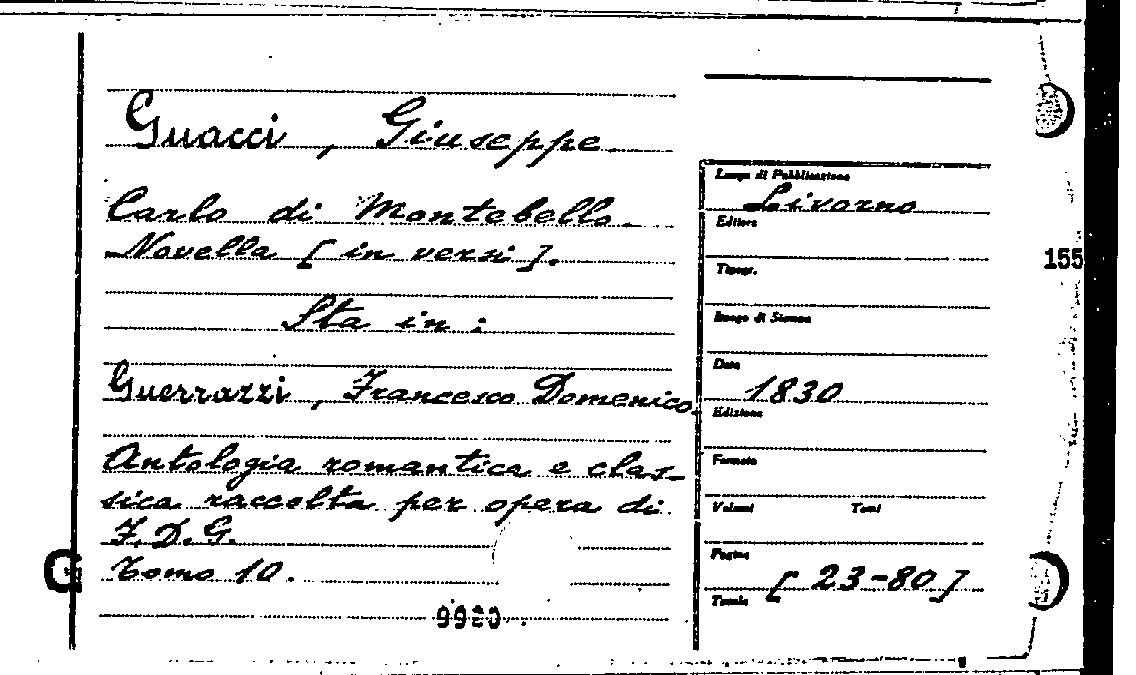 Guacci, Giuseppe
Carlo di Montebello.
Novella [in versi].
Sta in:
Guerrazzi, Francesco Domenico.
Antologia romantica e clas-
sica raccolta per opera di
F.D.G.
Tomo 10.
G
9920
Luogo di Pubblicazione
Livorno
Editore
Tipogr.
Luogo di Stampa
Data
1830
Edizione
Formato
Volumi Tomi
Pagine
[23-80]
Tavole
155